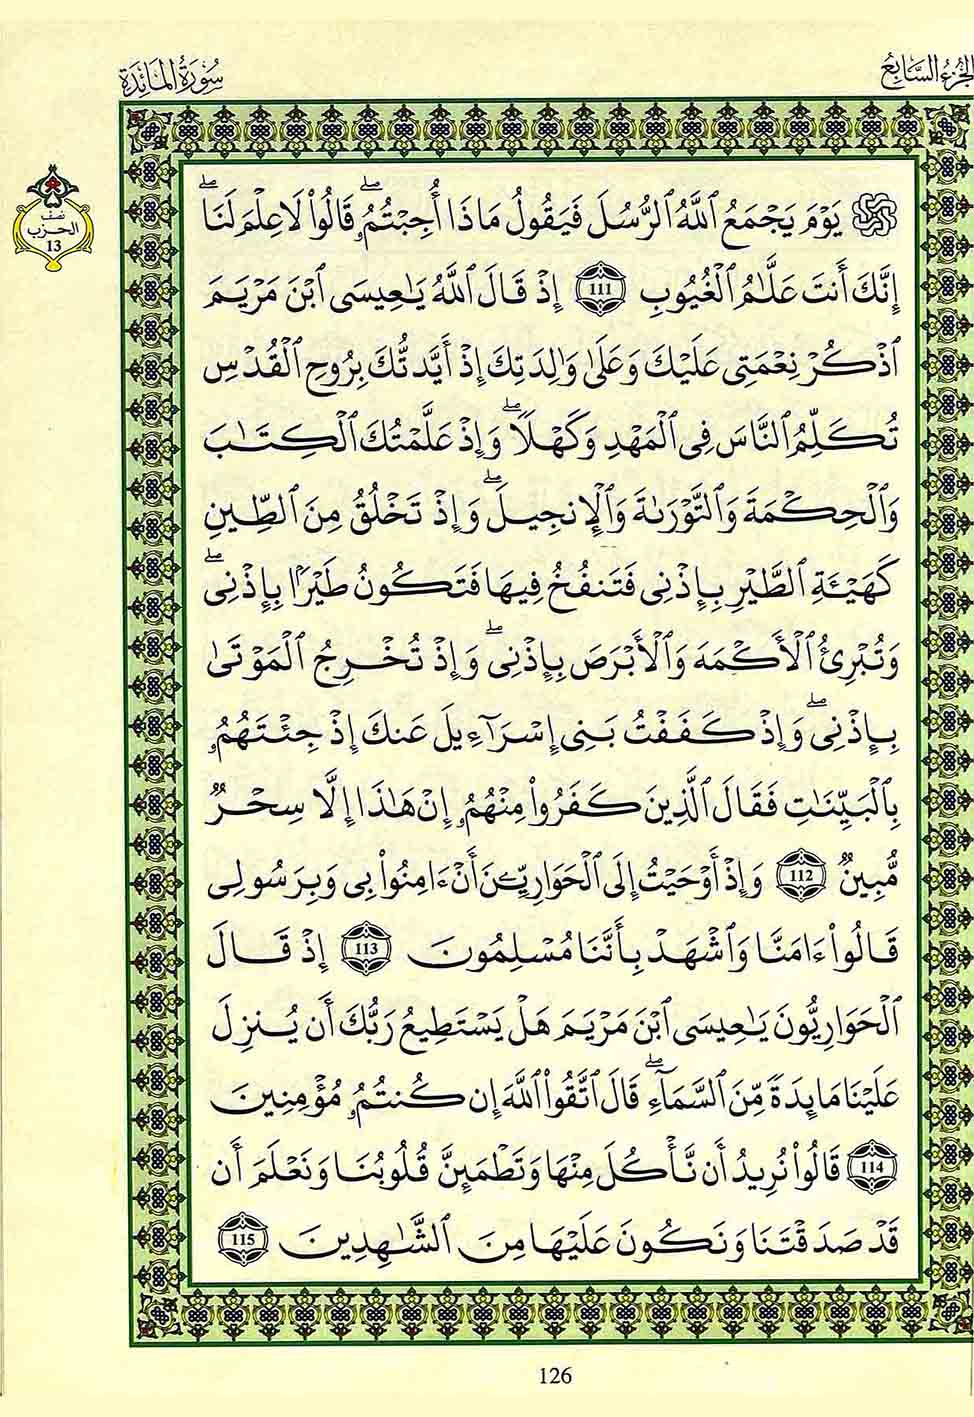 الجزء السابع
سورة المائدة
نصف
الحزب
13
۞ يَوْمَ يَجْمَعُ اُ۬للَّهُ اُ۬لرُّسُلَ فَيَقُولُ مَاذَا أُجِبْتُمُۥۖ قَالُواْ لَا عِلْمَ لَنَاۖ
إِنَّكَ أَنتَ عَلَّٰمُ اُ۬لْغُيُوبِ 111 إِذْ قَالَ اَ۬للَّهُ يَٰعِيسَى اَ۪بْنَ مَرْيَمَ
اَ۟ذْكُرْ نِعْمَتِى عَلَيْكَ وَعَلَىٰ وَٰلِدَتِكَ إِذْ أَيَّدتُّكَ بِرُوحِ اِ۬لْقُدْسِ
تُكَلِّمُ اُ۬لنَّاسَ فِى اِ۬لْمَهْدِ وَكَهْلًاۖ وَإِذْ عَلَّمْتُكَ اَ۬لْكِتَٰبَ
وَالْحِكْمَةَ وَالتَّوْرَىٰةَ وَالْإِنجِيلَۖ وَإِذْ تَخْلُقُ مِنَ اَ۬لطِّينِ
كَهَيْـَٔةِ اِ۬لطَّيْرِ بِإِذْنِى فَتَنفُخُ فِيهَا فَتَكُونُ طَيْرًا بِإِذْنِىۖ
وَتُبْرِئُ اُ۬لْأَكْمَهَ وَالْأَبْرَصَ بِإِذْنِىۖ وَإِذْ تُخْرِجُ اُ۬لْمَوْتَىٰ
بِإِذْنِىۖ وَإِذْ كَفَفْتُ بَنِى إِسْرَٰٓءِيلَ عَنكَ إِذْ جِئْتَهُمُۥ
بِالْبَيِّنَٰتِ فَقَالَ اَ۬لَّذِينَ كَفَرُواْ مِنْهُمُۥ إِنْ هَٰذَا إِلَّا سِحْرٌ
مُّبِينٌ 112 وَإِذْ أَوْحَيْتُ إِلَى اَ۬لْحَوَارِيِّـۧنَ أَنْ ءَامِنُواْ بِى وَبِرَسُولِى
قَالُواْ ءَامَنَّا وَاشْهَدْ بِأَنَّنَا مُسْلِمُونَ 113 إِذْ قَالَ
اَ۬لْحَوَارِيُّونَ يَٰعِيسَى اَ۪بْنَ مَرْيَمَ هَلْ يَسْتَطِيعُ رَبُّكَ أَن يُنزِلَ
عَلَيْنَا مَآئِدَةً مِّنَ اَ۬لسَّمَآءِۖ قَالَ اَ۪تَّقُواْ اُ۬للَّهَ إِن كُنتُمُۥ مُؤْمِنِينَ
114 قَالُواْ نُرِيدُ أَن نَّأْكُلَ مِنْهَا وَتَطْمَئِنَّ قُلُوبُنَا وَنَعْلَمَ أَن
قَدْ صَدَقْتَنَا وَنَكُونَ عَلَيْهَا مِنَ اَ۬لشَّٰهِدِينَ 115
126